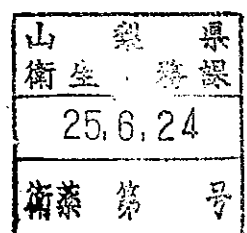 山梨県
衛生薬務課
25.6.24
衛薬 第 号